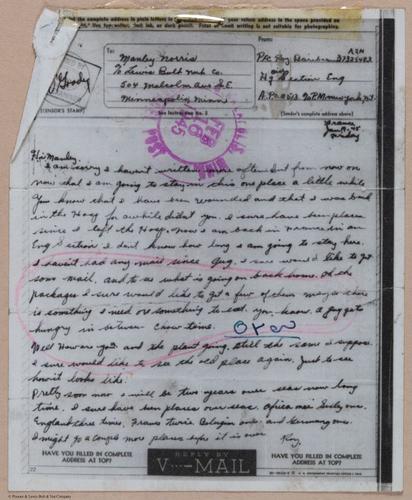 the complete address in plain letters in
your return address in the space provided on
Use typewriter, dark ink, or dark pencil. Faint or small writing is not suitable for photographing.
To:
From:
Manley Norris
% Lewis Bolt Nut Co.
504 Malcolm Ave S.E.
Minneapolis Minn
Pfc Roy
Hq Section Eng
A.P.O. N.Y.
(CENSOR'S STAMP)
See Instruction No. 2
(Sender's complete address above)
France
Friday
FEB 18 1945
Hi Manley.
I am sorry I haven't written more often but from now on
now that I am going to stay in this one place a little while
You know that I have been wounded and that I was back
in the Hosp for awhile didn't you. I sure have been places
since I left the Hosp. Now I am back in France in an
Eng Section I don't know how long I am going to stay here.
I haven't had any mail since Aug. I sure would like to get
some mail. And to as what is going on back home. Oh the
packages I sure would like to get a few of them maybe there
is something I need or something to eat. You know. A guy gets
hungry in between chow time.
Over
Well How are you and the plant going still the same I suppose
I sure would like to see the old place again. Just to see
how it looks like.
Pretty soon now I will be two years over seas now long
time. I sure have been places over seas Africa once Sicily once
England three times, France twice Belgium once and Germany once
I might go a couple more places before it is over
Roy
HAVE YOU FILLED IN COMPLETE ADDRESS AT TOP?
REPLY BY
V···—MAIL
HAVE YOU FILLED IN COMPLETE ADDRESS AT TOP?